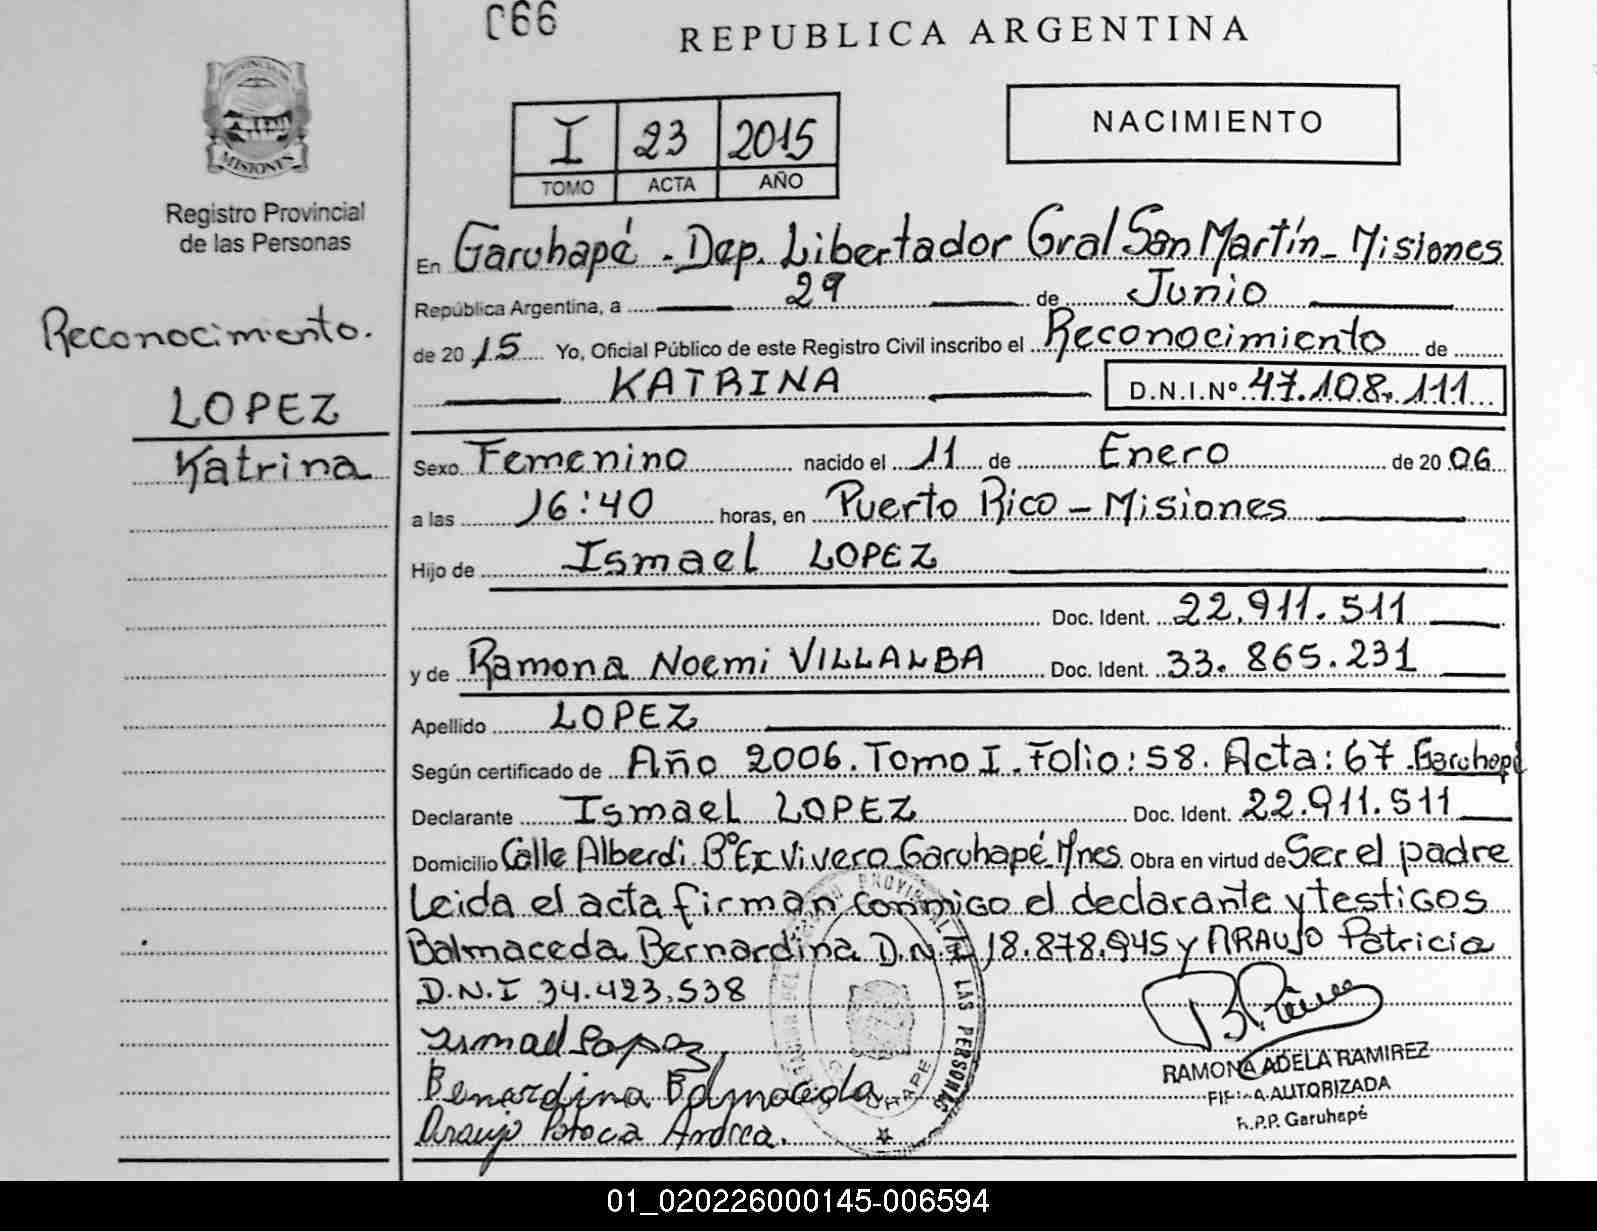 066
REPUBLICA ARGENTINA
PROVINCIA DE
MISIONES
Registro Provincial
de las Personas
I 23 2015
TOMO ACTA AÑO
NACIMIENTO
Reconocimiento.
LOPEZ
Katrina
En Garuhapé - Dep. Libertador Gral San Martín - Misiones
República Argentina, a 29 de Junio
de 2015 Yo, Oficial Público de este Registro Civil inscribo el Reconocimiento de
KATRINA D.N.I.Nº 47.108.111
Sexo Femenino nacido el 11 de Enero de 2006
a las 16:40 horas, en Puerto Rico - Misiones
Hijo de Ismael LOPEZ
Doc. Ident. 22.911.511
y de Ramona Noemi VILLALBA Doc. Ident. 33.865.231
Apellido LOPEZ
Según certificado de Año 2006. Tomo I. Folio: 58. Acta: 67. Garuhapé
Declarante Ismael LOPEZ Doc. Ident. 22.911.511
Domicilio Calle Alberdi Bº Ex Vivero Garuhapé Mnes Obra en virtud de Ser el padre
Leida el acta firman conmigo el declarante y testigos
Balmaceda Bernardina D.N.I 18.878.945 y ARAUJO Patricia
D.N.I 34.423.538
Ismael Lopez
Benardina Balmaceda
Araujo Andrea.
PROVINCIAL DE LAS PERSONAS
RAMONA ADELA RAMIREZ
FIRMA AUTORIZADA
R.P.P. Garuhapé
01_020226000145-006594